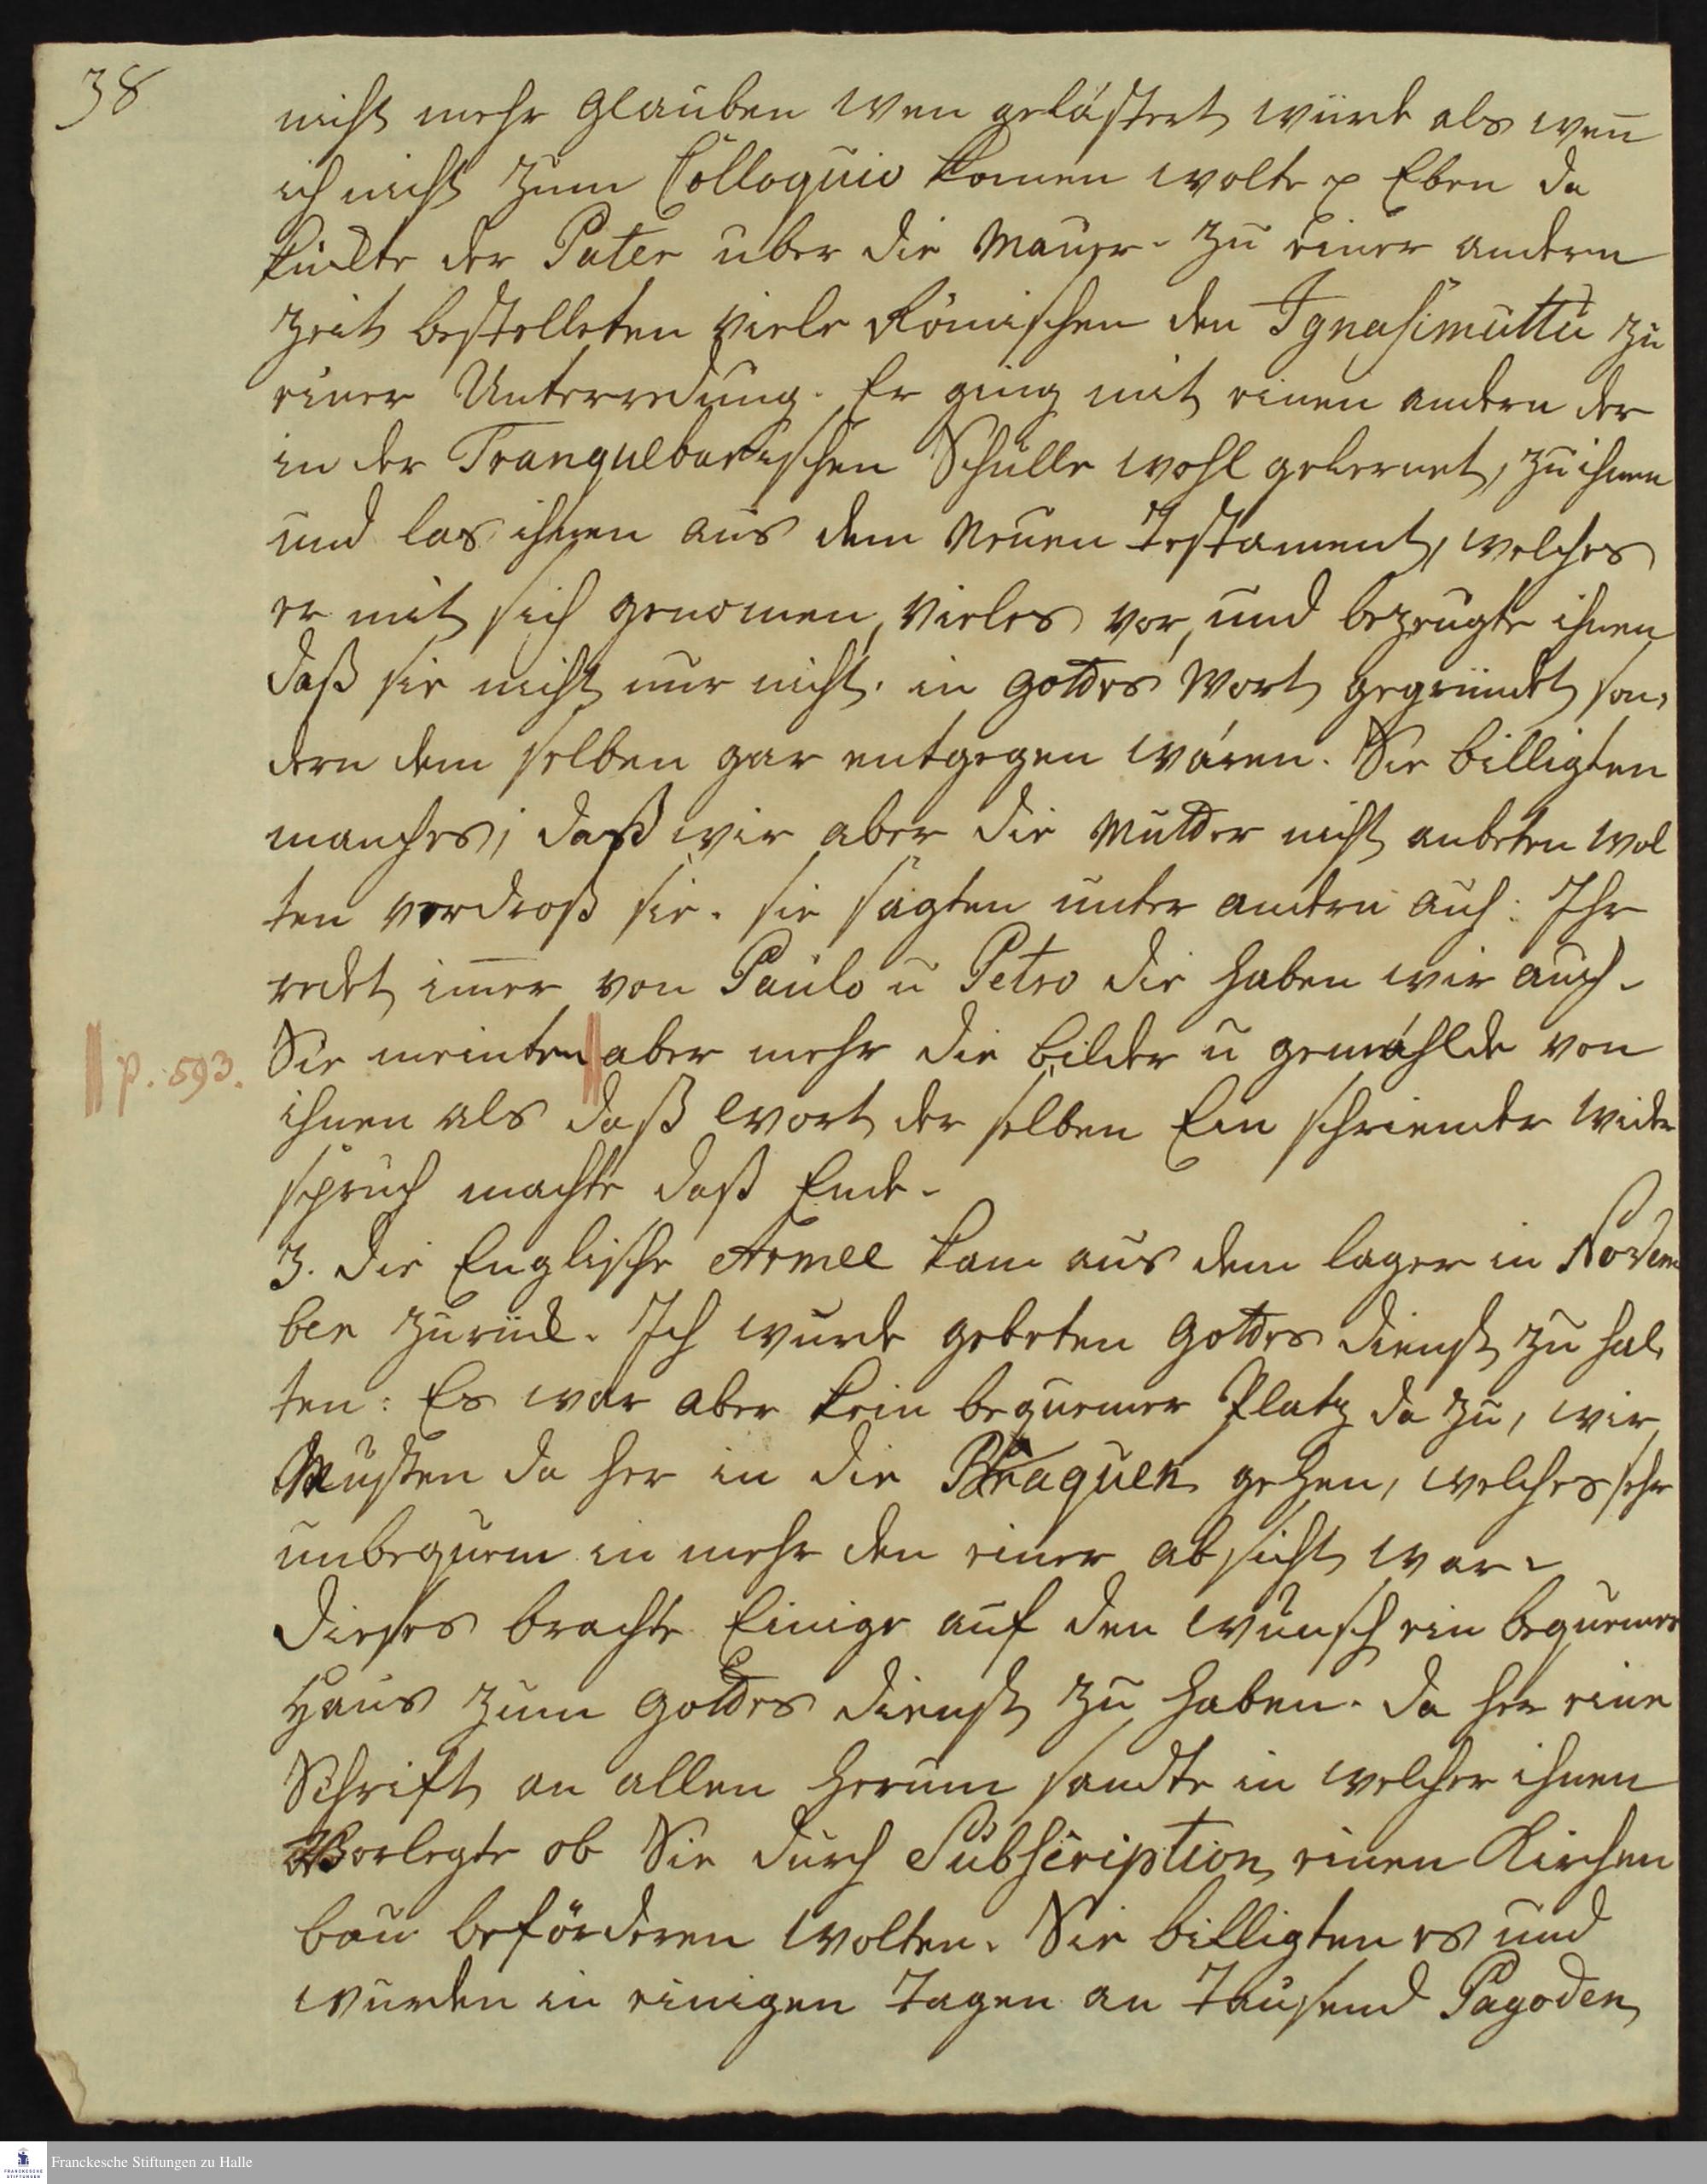 38
nicht mehr glauben wen gelästert würde als wen̄
ich nicht zum Colloquio komen wolte p Eben da
kückte der Pater uber die Mauer. zu einer andern
Zeit bestelleten viele Römischen den Ignasimuttu zu
einer Unterredung. Er ging mit einen andern der
in der Tranquebarischen Schulle wohl gelernet, zu ihnen
und las ihnen aus dem Neuen Testament, welches
er mit sich genomen, vieles vor, und bezeugte ihnen
daß sie nicht nur nicht in Gottes Wort gegründet son,
dern dem selben gar entgegen wären. Sie billigten
manches, daß wir aber die Mutter nicht anbeten wol
ten verdroß sie. sie sagten unter andern auch: Ihr
redet im̄er von Paulo u Petro die haben wir auch.
Sie meinten aber mehr die bilder u gemählde von
p. 593.
ihnen als daß Wort der selben Ein schreiender wider
spruch machte daß Ende.
3. Die Englische Armee kam aus dem lager in Novem
ber zurück. Ich wurde gebeten Gottes dienst zu hal,
ten: Es war aber kein bequemer Platz da zu, wir
Musten da her in die Braquen gehen, welches sehr
unbequem in mehr den einer absicht war.
Dieses brachte Einige auf den wunsch ein bequemes
Haus zum Gottes dienst zu haben. da her eine
Schrift an allen herum sandte in welcher ihnen
Vorlegte ob Sie durch Subscription einen Kirchen
bau beförderen wolten. Sie billigten es und
wurden in einigen Tagen an Tausend Pagoden
Franckesche Stiftungen zu Halle